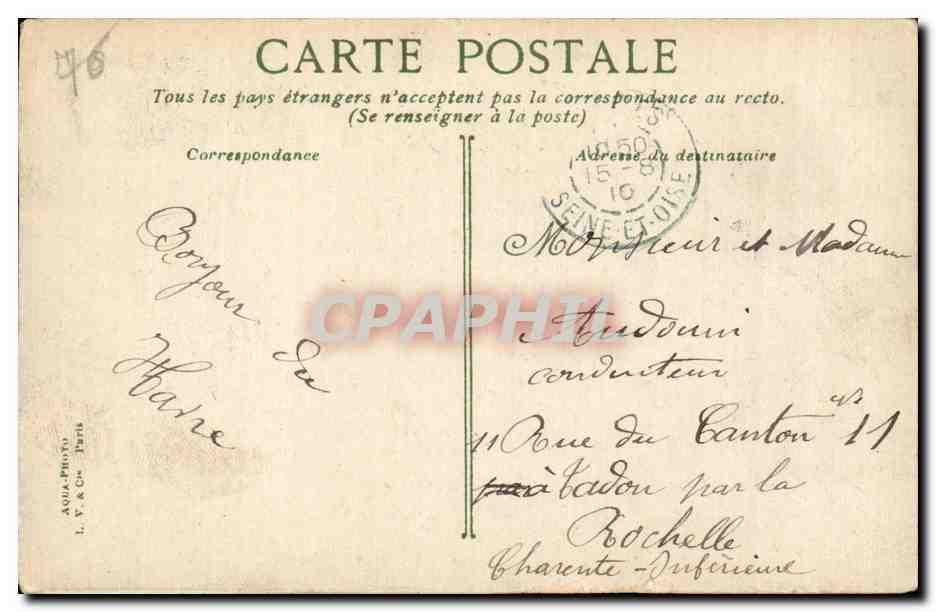 76
CARTE POSTALE
Tous les pays étrangers n'acceptent pas la correspondance au recto.
(Se renseigner à la poste)
Correspondance
Adresse du destinataire
50
15-8
10
SEINE-ET-OISE
Bonjour
du
Havre
Monsieur et Madame
Audouin
conducteur
11 Rue du Canton n° 11
à Tadon par la
Rochelle
Charente-Inférieure
AQUA-PHOTO
L. V. & Cie Paris
CPAPHIL